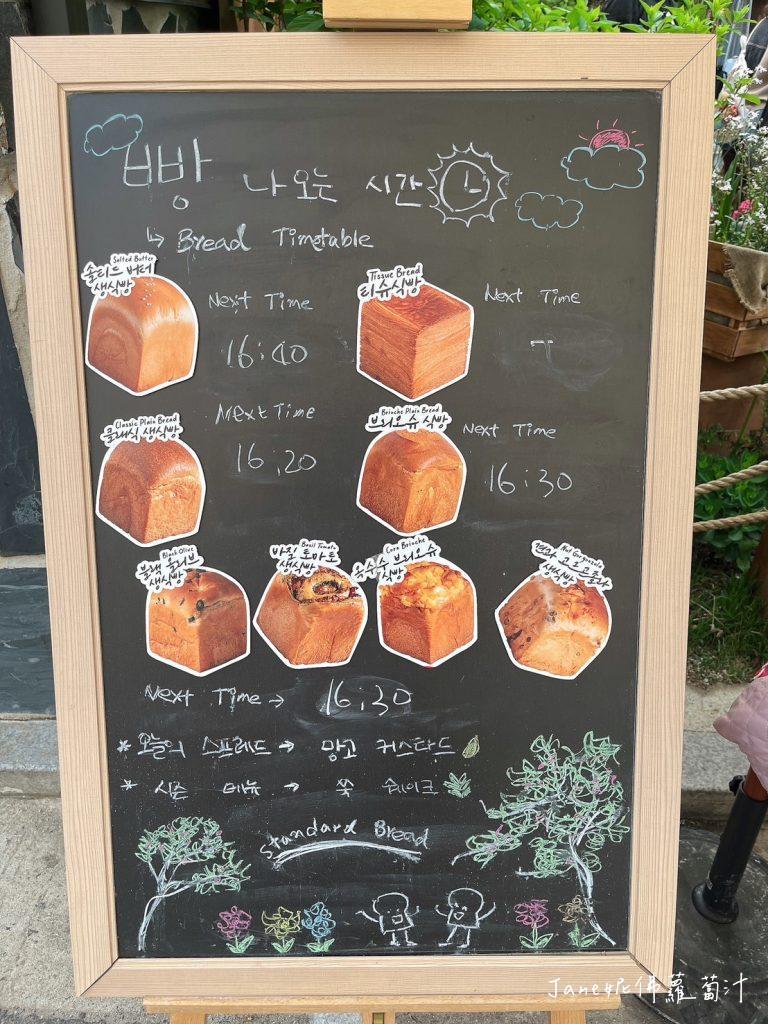 빵 나오는 시간
↳ Bread Timetable
Salted Butter
솔티드 버터
생식빵
Next Time
16:40
Tissue Bread
티슈식빵
Next Time
-
Classic Plain Bread
클래식 생식빵
Next Time
16:20
Brioche Plain Bread
브리오슈 식빵
Next Time
16:30
Black Olive
블랙 올리브
생식빵
Basil Tomato
바질 토마토
생식빵
Corn Brioche
옥수수 브리오슈
식빵
Nut Gorgonzola
견과 고르곤졸라
생식빵
Next Time → 16:30
* 오늘의 스프레드 → 망고 커스타드
* 시즌 메뉴 → 쑥 쉐이크
Standard Bread
Janey尼佛蘿蔔汁